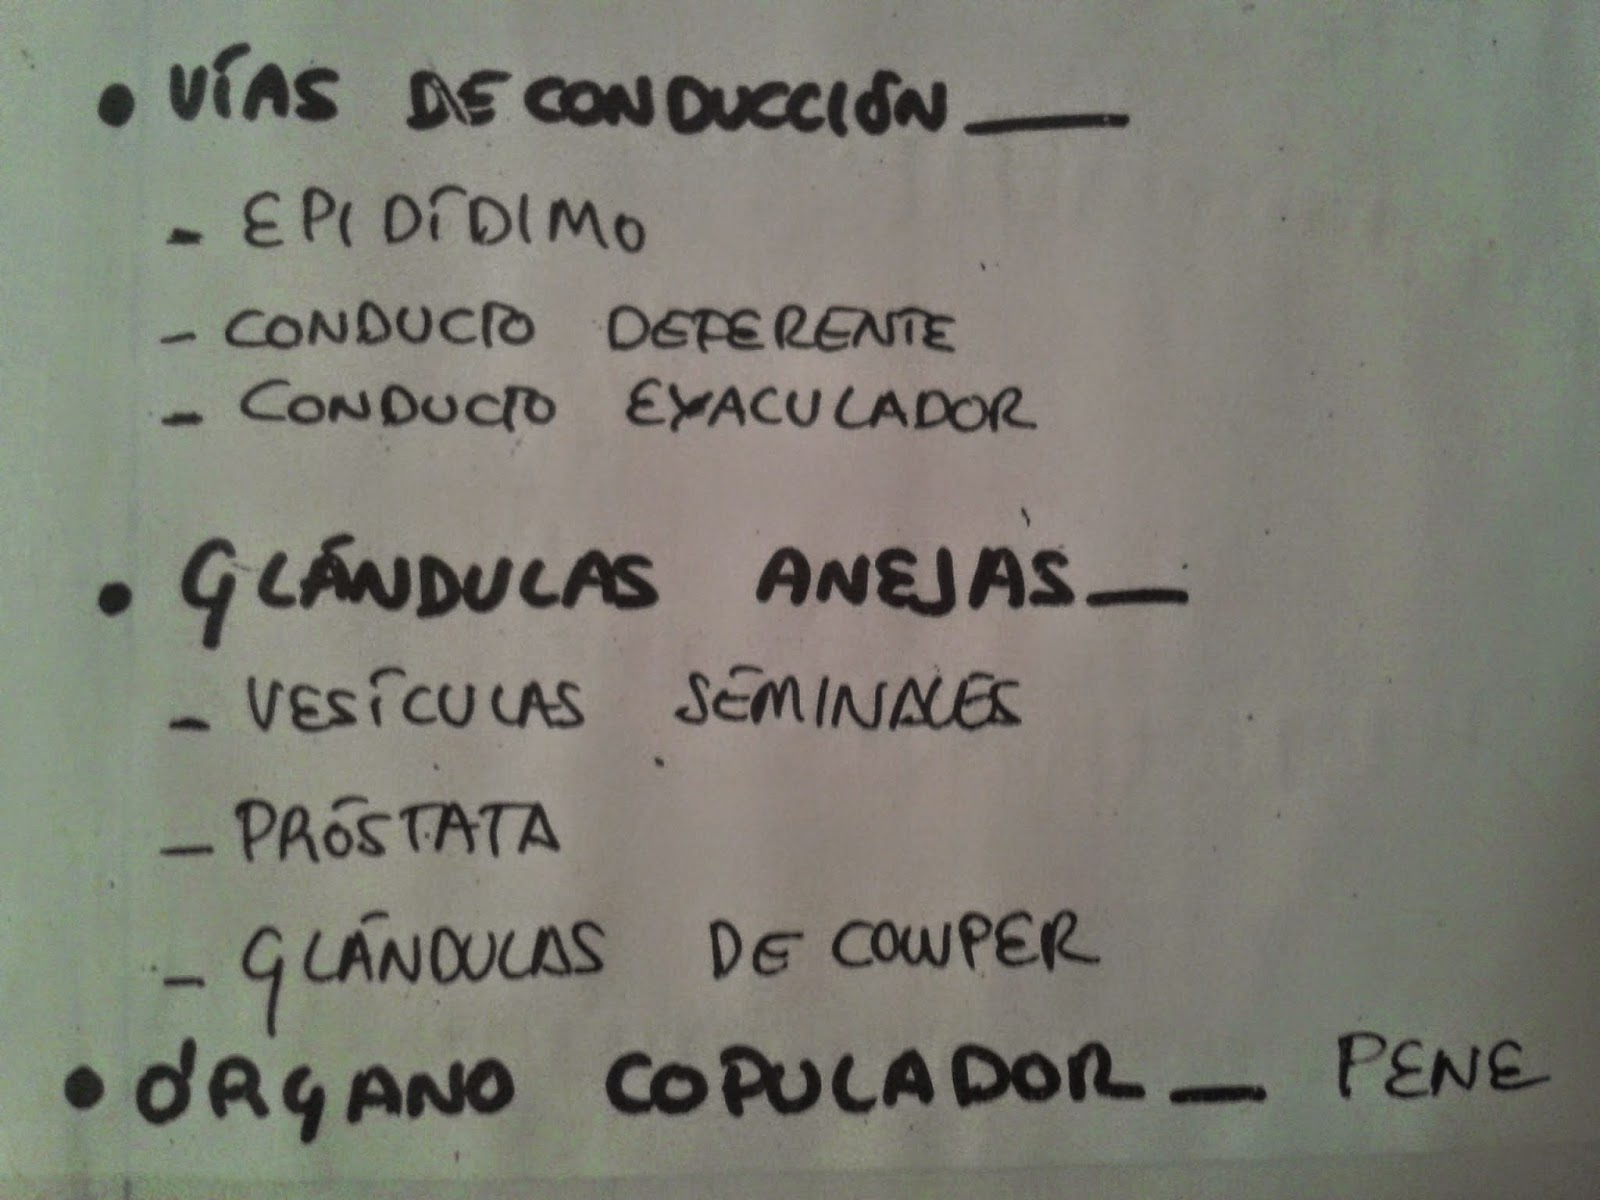 • VÍAS DE CONDUCCIÓN __
- EPIDÍDIMO
- CONDUCTO DEFERENTE
- CONDUCTO EYACULADOR
• GLÁNDULAS ANEJAS __
- VESÍCULAS SEMINALES
- PRÓSTATA
- GLÁNDULAS DE COWPER
• ÓRGANO COPULADOR __ PENE